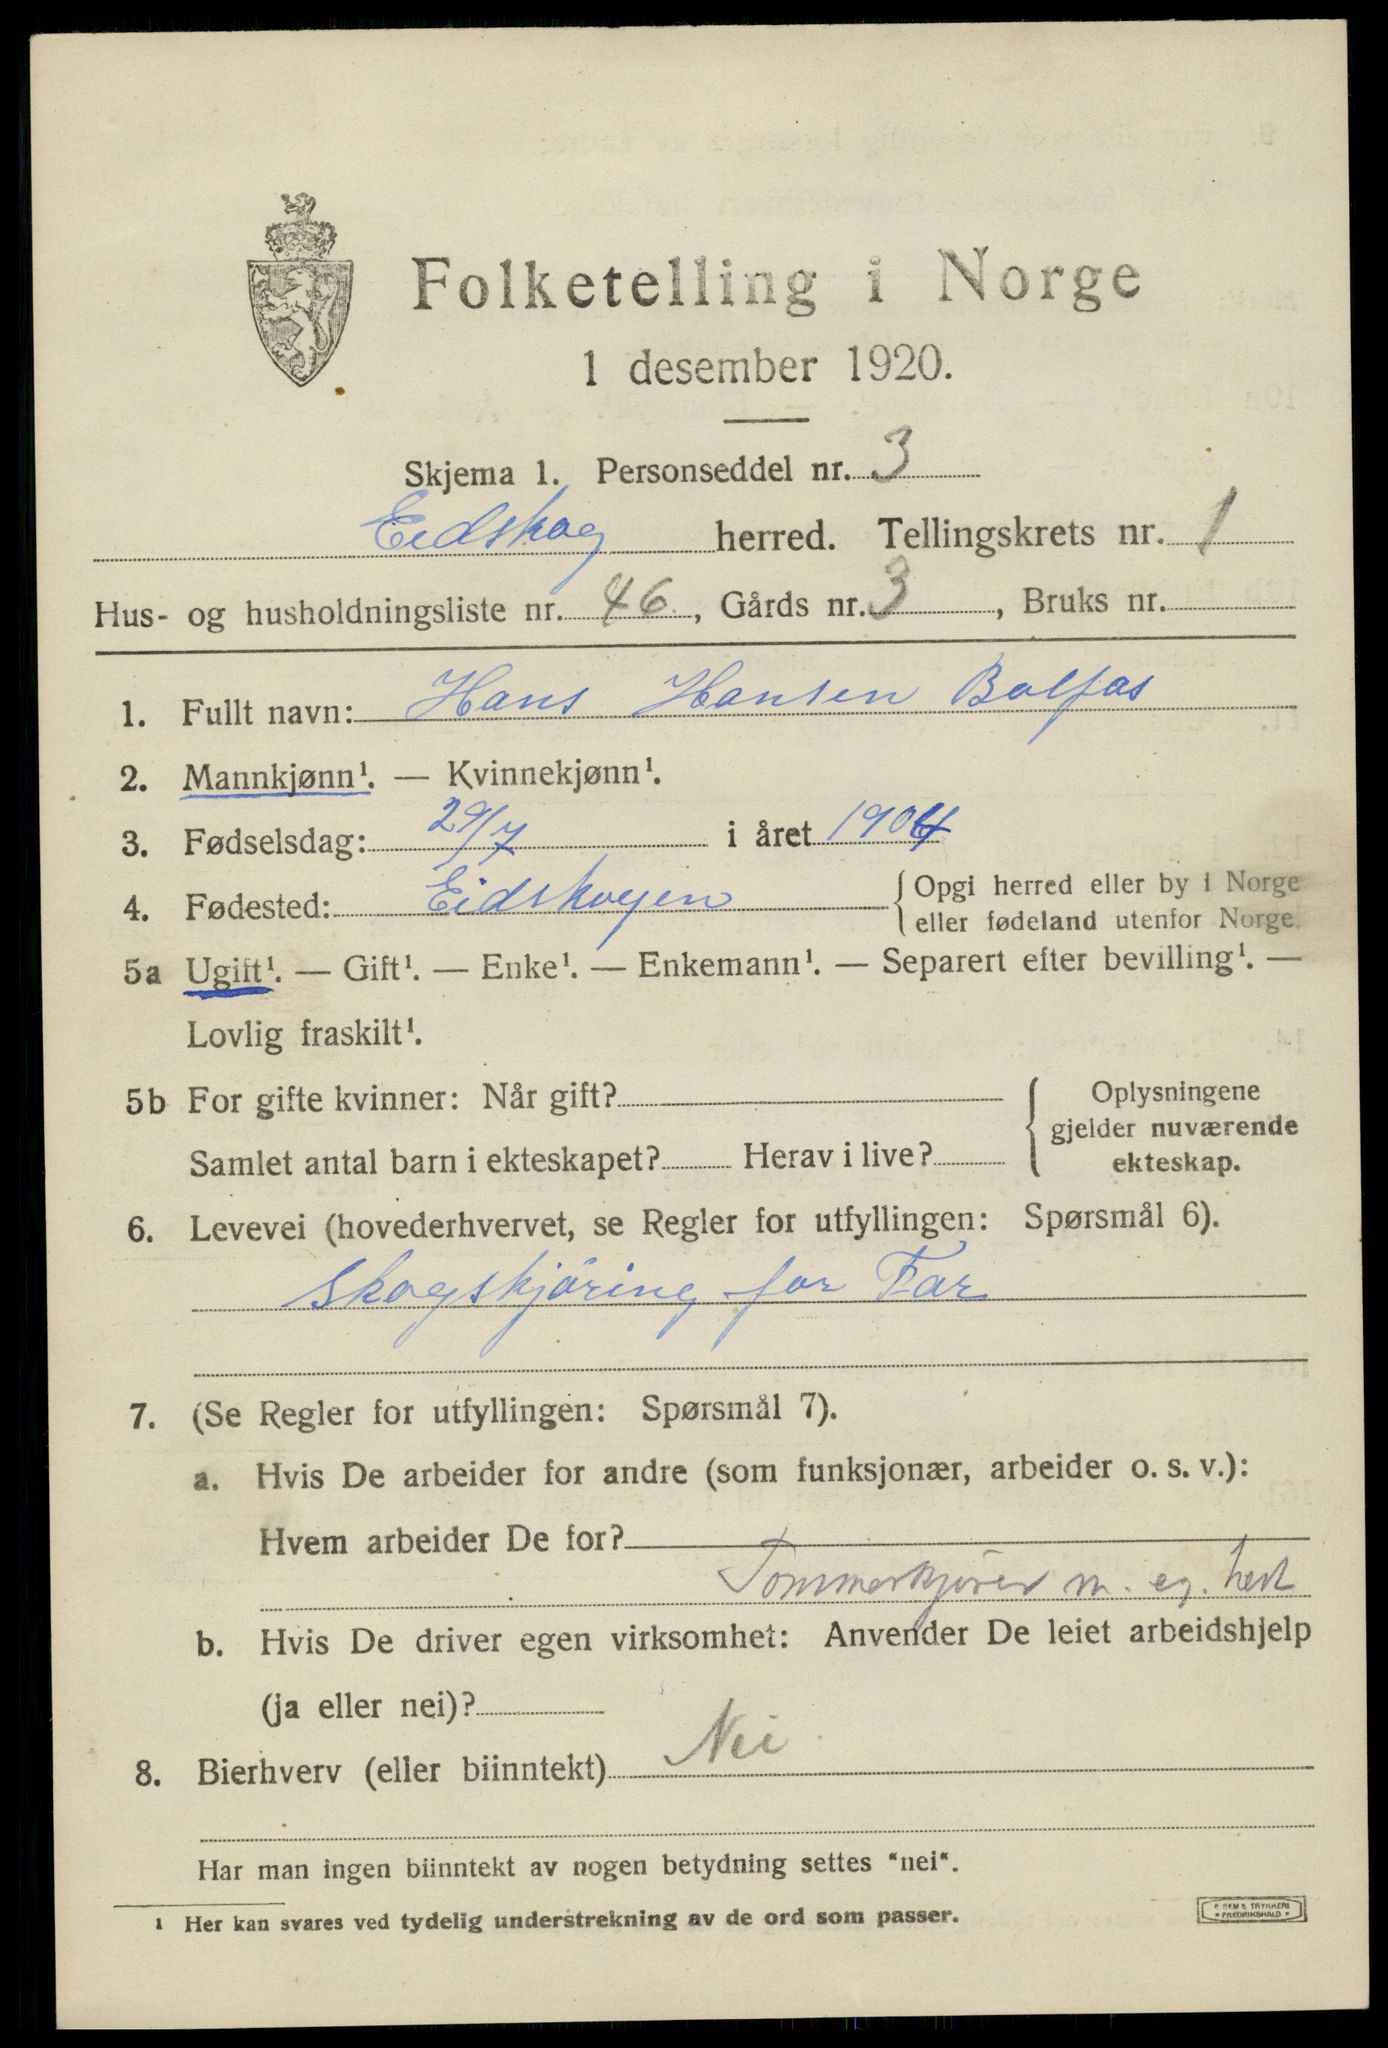 Folketelling i Norge
1 desember 1920.
Skjema 1. Personseddel nr. 3
Eidskog herred. Tellingskrets nr. 1
Hus- og husholdningsliste nr. 46, Gårds nr. 3, Bruks nr.
1. Fullt navn: Hans Hansen Bolfos
2. Mannkjønn¹. — Kvinnekjønn¹.
3. Fødselsdag: 29/7 i året 1904
4. Fødested: Eidskogen { Opgi herred eller by i Norge
eller fødeland utenfor Norge.
5a Ugift¹. — Gift¹. — Enke¹. — Enkemann¹. — Separert efter bevilling¹. —
Lovlig fraskilt¹.
5b For gifte kvinner: Når gift? { Oplysningene
gjelder nuværende
Samlet antal barn i ekteskapet? Herav i live? ekteskap.
6. Levevei (hovederhvervet, se Regler for utfyllingen: Spørsmål 6).
Skogskjöring for Far
7. (Se Regler for utfyllingen: Spørsmål 7).
a. Hvis De arbeider for andre (som funksjonær, arbeider o. s. v.):
Hvem arbeider De for?
Tømmerkjører m. eg. hest
b. Hvis De driver egen virksomhet: Anvender De leiet arbeidshjelp
(ja eller nei)?
8. Bierhverv (eller biinntekt) Nei
Har man ingen biinntekt av nogen betydning settes "nei".
¹ Her kan svares ved tydelig understrekning av de ord som passer.
TRYKKERI
FREDRIKSHALD